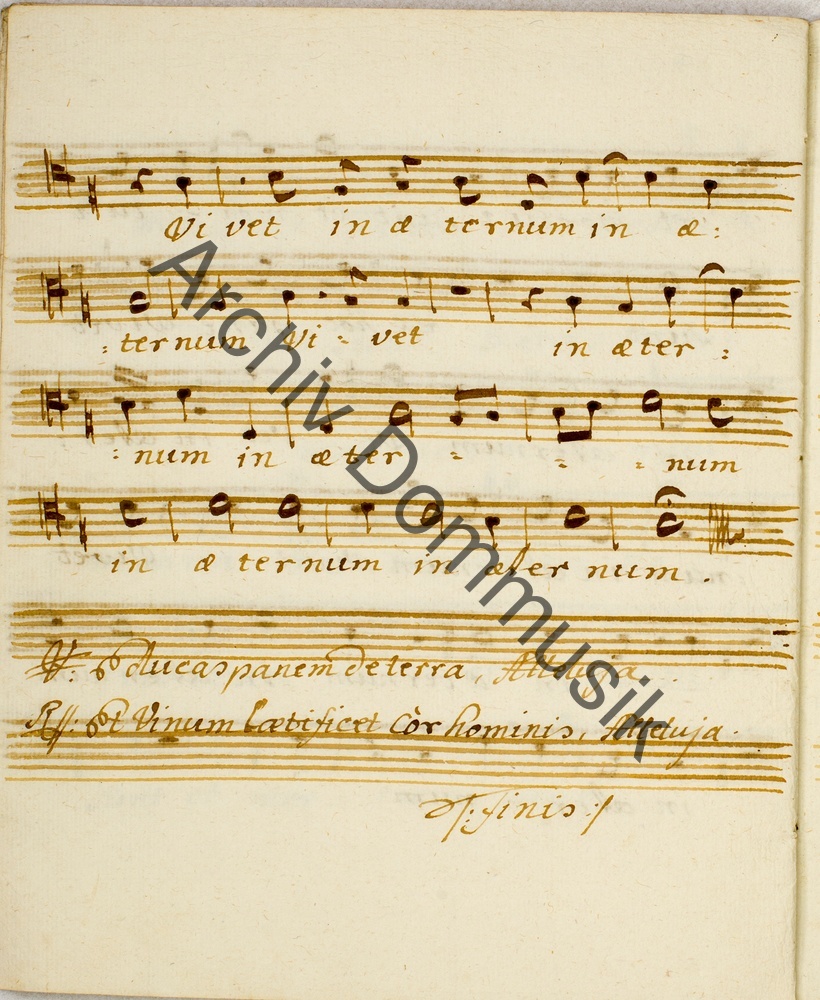 Vi vet in æ ternum in æ:
: ternum Vi - vet in æter :
: num in æter - - - num
in æ ternum in æter num .
V: Educas panem de terra, Alleluja.
R: Et Vinum lætificet Cor hominis, Alleluja.
Finis
Archiv Dommusik